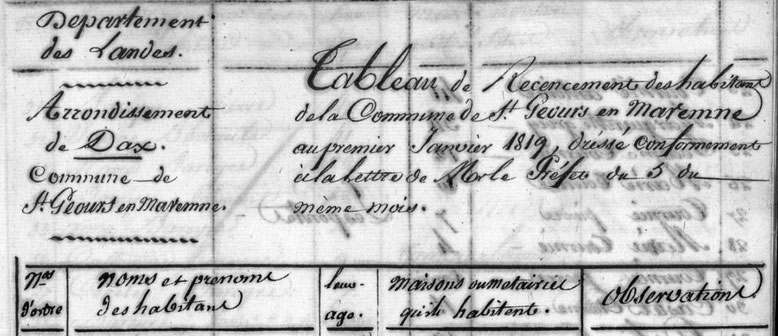 Departement
des Landes.
Arrondissement
de Dax.
Commune de
St Geours en Maremne.
Tableau de Recencement des habitant
de la Commune de St Geours en Maremne
au premier Janvier 1819, dréssé conformement
à la lettre de Mr le Préfet du 5 du
même mois.
Nos d'ordre
noms et prenoms
des habitant
leur
age.
maisons ou metairies
qu'ils habitent.
Observations